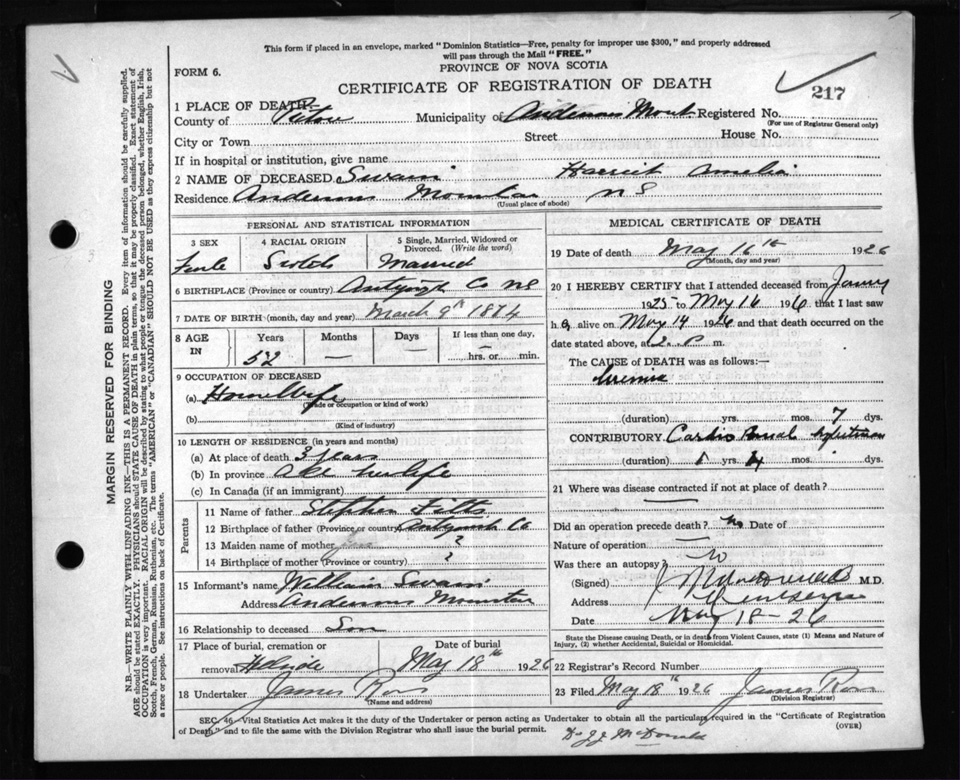 This form if placed in an envelope, marked "Dominion Statistics—Free, penalty for improper use $300," and properly addressed
will pass through the Mail "FREE."
PROVINCE OF NOVA SCOTIA
FORM 6.
CERTIFICATE OF REGISTRATION OF DEATH
217
1 PLACE OF DEATH—
County of Pictou Municipality of Andersons Mount Registered No.
(For use of Registrar General only)
City or Town Street House No.
If in hospital or institution, give name
2 NAME OF DECEASED Harriet Amelia
Residence Andersons Mountain N S
(Usual place of abode)
PERSONAL AND STATISTICAL INFORMATION
3 SEX 4 RACIAL ORIGIN 5 Single, Married, Widowed or Divorced. (Write the word)
Female Scotch Married
6 BIRTHPLACE (Province or country) Co NS
7 DATE OF BIRTH (month, day and year) March 9th 1874
8 AGE IN Years Months Days If less than one day,
52 — — hrs. or min.
9 OCCUPATION OF DECEASED
(a) House Wife
(Trade or occupation or kind of work)
(b)
(Kind of industry)
10 LENGTH OF RESIDENCE (in years and months)
(a) At place of death 3 years
(b) In province All her life
(c) In Canada (if an immigrant)
Parents
11 Name of father Stephen
12 Birthplace of father (Province or country) Co
13 Maiden name of mother ?
14 Birthplace of mother (Province or country) ?
15 Informant's name William
Address Andersons Mountain
16 Relationship to deceased Son
17 Place of burial, cremation or removal Date of burial
May 18th 1926
18 Undertaker James Ross
(Name and address)
MEDICAL CERTIFICATE OF DEATH
19 Date of death May 16th 1926
(Month, day and year)
20 I HEREBY CERTIFY that I attended deceased from
1925 to May 16 1926 that I last saw
h alive on May 14 1926 and that death occurred on the
date stated above, at 2 P m.
The CAUSE of DEATH was as follows:—
Uremia
(duration) yrs. mos. 7 dys.
CONTRIBUTORY Cardio Renal
(duration) 1 yrs. 4 mos. dys.
21 Where was disease contracted if not at place of death?
—
Did an operation precede death? No Date of
Nature of operation —
Was there an autopsy No
(Signed) M.D.
Address
Date May 18 - 26
State the Disease causing Death, or in death from Violent Causes, state (1) Means and Nature of
Injury, (2) whether Accidental, Suicidal or Homicidal.
22 Registrar's Record Number
23 Filed May 18th 1926 James Ross
(Division Registrar)
SEC. 46—Vital Statistics Act makes it the duty of the Undertaker or person acting as Undertaker to obtain all the particulars required in the "Certificate of Registration
of Death" and to file the same with the Division Registrar who shall issue the burial permit.
(OVER)
Dr J J McDonald
MARGIN RESERVED FOR BINDING
N.B.—WRITE PLAINLY WITH UNFADING INK—THIS IS A PERMANENT RECORD. Every item of information should be carefully supplied.
AGE should be stated EXACTLY. PHYSICIANS should STATE CAUSE OF DEATH in plain terms, so that it may be properly classified. Exact statement of
OCCUPATION is very important. RACIAL ORIGIN will be described by stating to what people or tongue the deceased person belonged, whether English, Irish,
Scotch, French, German, Russian, Ruthenian, etc. The terms "AMERICAN" or "CANADIAN" SHOULD NOT BE USED as they express citizenship but not
a race or people. See instructions on back of Certificate.